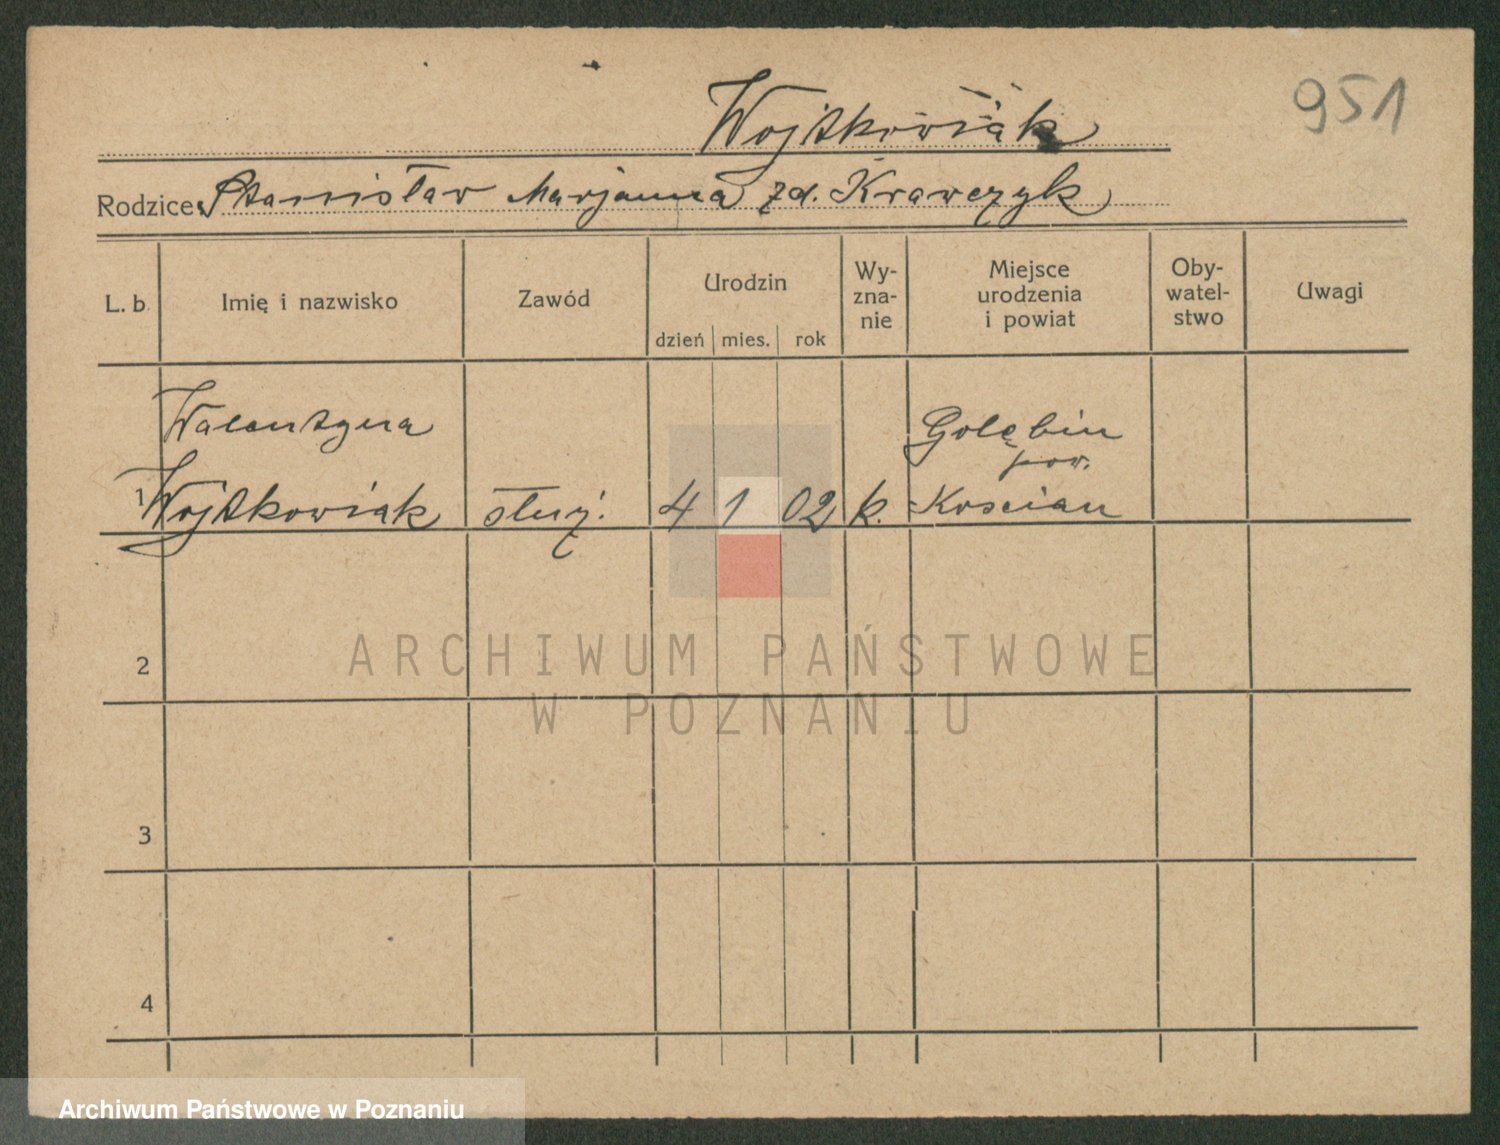 951
Wojtkowiak
Rodzice Stanisław Marjanna zd. Krawczyk
L. b.
Imię i nazwisko
Zawód
Urodzin
dzień mies. rok
Wy-
zna-
nie
Miejsce
urodzenia
i powiat
Oby-
watel-
stwo
Uwagi
Walentyna
Gołębin
pow.
1 Wojtkowiak służ. 4 1 02 k. Koscian
2
ARCHIWUM PAŃSTWOWE
W POZNANIU
3
4
Archiwum Państwowe w Poznaniu